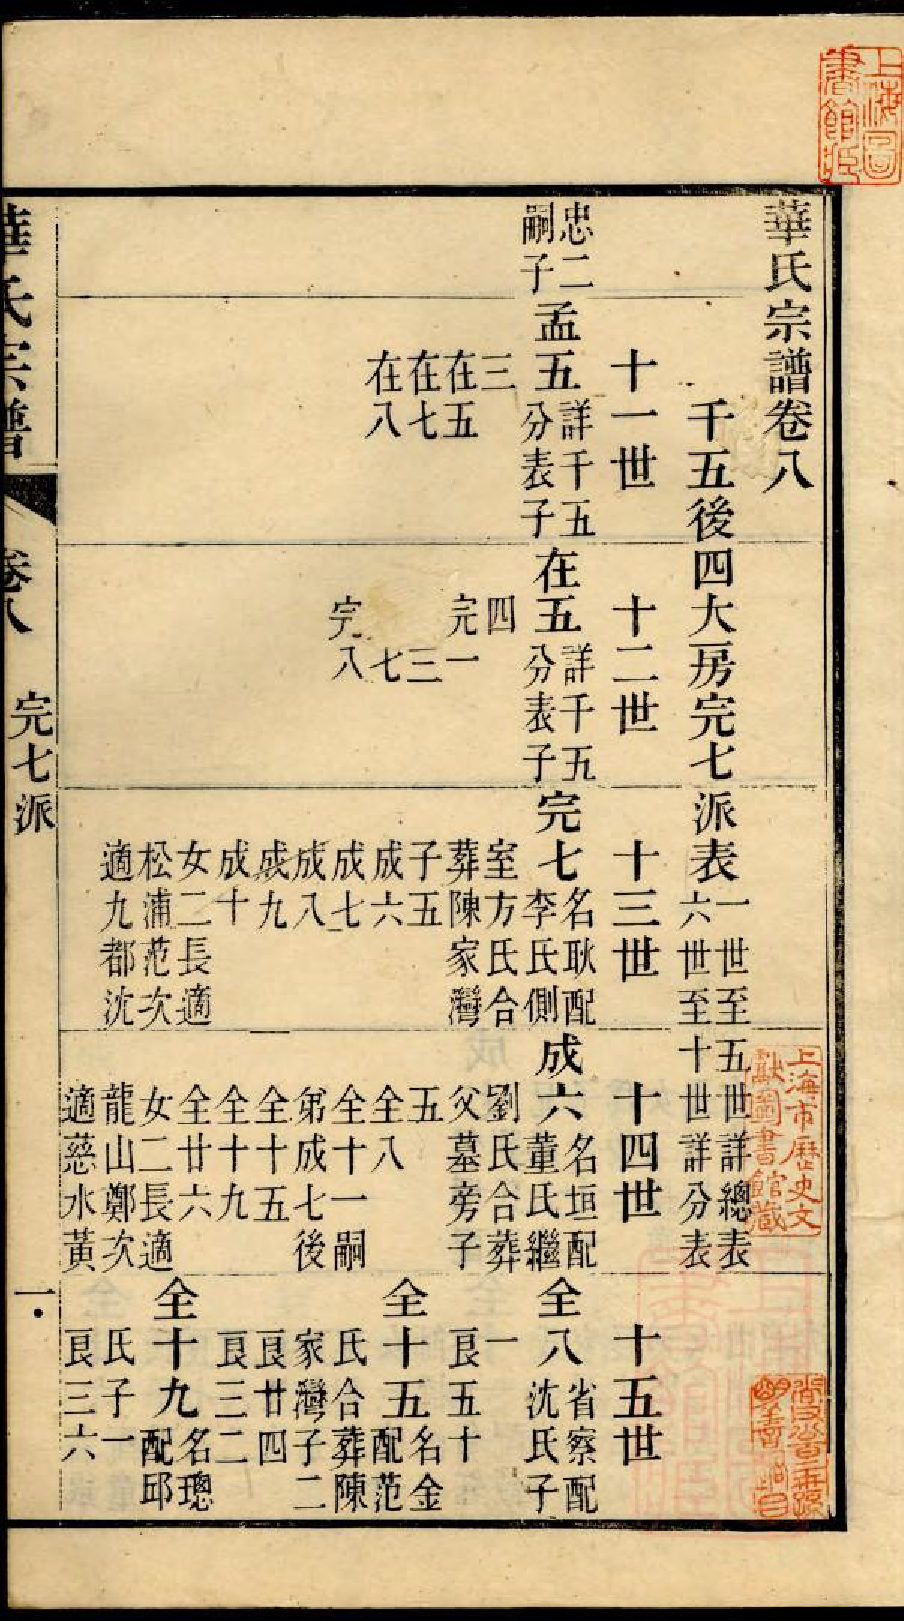 上海圖
書館藏
華氏宗譜卷八
千五後四大房完七派表
一世至五世詳總表
六世至十世詳分表
十一世
十二世
十三世
十四世
十五世
忠二
嗣子
孟五
詳千五
分表子
三
在五
在七
在八
在五
詳千五
分表子
四
完一
三
七
完八
完七
名耿配
李氏側
室方氏合
葬陳家灣
子五
成六
成七
成八
成九
成十
女二長適
松浦范次
適九都沈
成六
名垣配
董氏繼
劉氏合葬
父墓旁子
五
全八
全十一嗣
弟成七後
全十五
全十九
全廿六
女二長適
龍山鄭次
適慈水黃
全八
省察配
沈氏子
一
良五十
全十五
名金
配范
氏合葬陳
家灣子二
良廿四
良三二
全十九
名璁
配邱
氏子一
良三六
華氏宗譜
卷八
完七派
一
上海市歷史文
獻圖書館藏